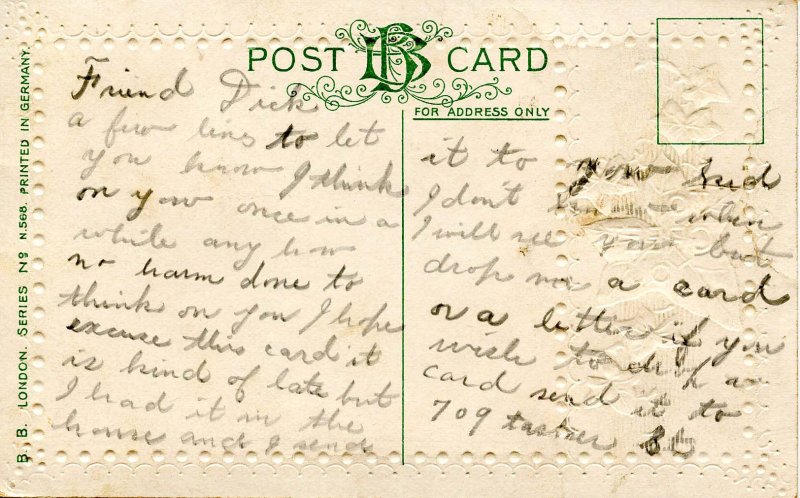 POST CARD
FOR ADDRESS ONLY
B. B. LONDON. SERIES No N.568. PRINTED IN GERMANY.
Friend Dick
a few lines to let
you know I think
on you once in a
while any how
no harm done to
think on you I hope
excuse this card it
is kind of late but
I had it in the
house and I send
it to you kid
I don't when
I will see you but
drop me a card
or a letter if you
wish to
card send it to
709